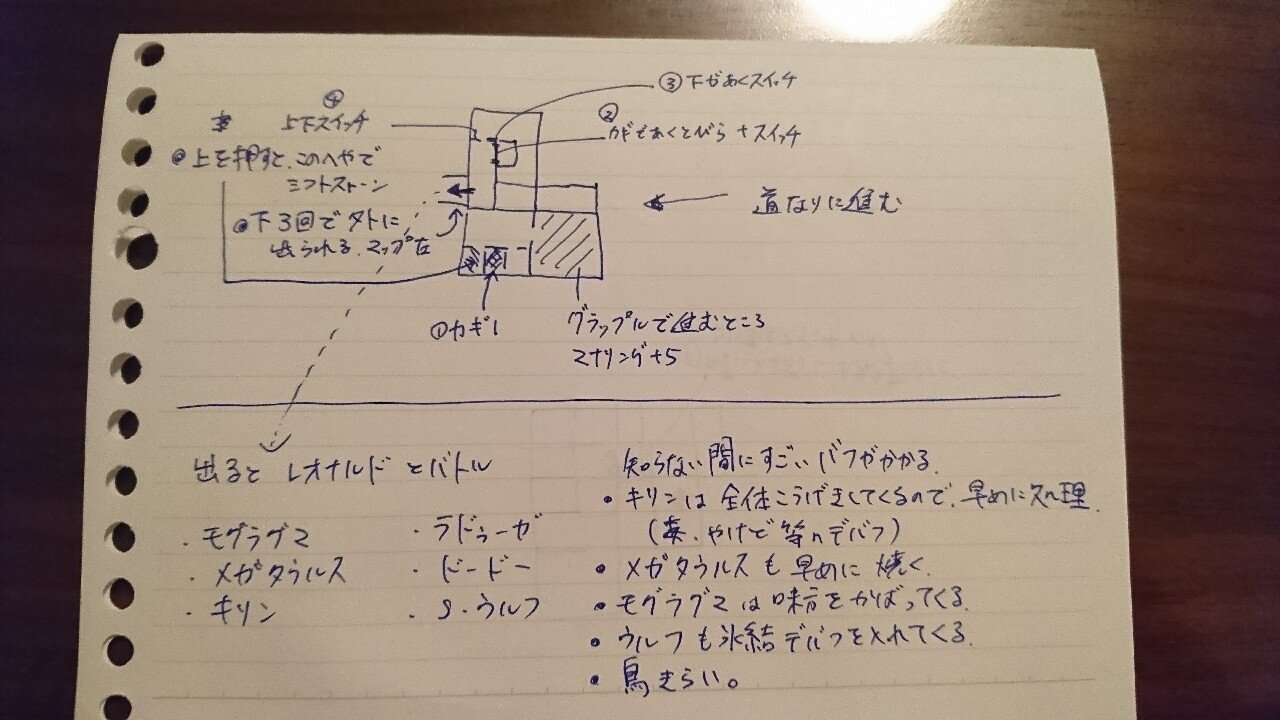 ③下があくスイッチ
②
カギであくとびら＋スイッチ
④
上下スイッチ
●上を押すと、このへやで
ミフトストーン
●下3回で外に
出られる、マップ左
道なりに進む
①カギ1
グラップルで進むところ
マナリング+5
出ると レオナルド とバトル
・モグラグマ
・メガタウルス
・キリン
・ラドゥーガ
・ドードー
・S・ウルフ
知らない間にすごいバフがかかる。
・キリンは全体こうげきしてくるので、早めに処理
(毒、やけど等のデバフ)
・メガタウルスも早めに焼く。
・モグラグマは味方をかばってくる。
・ウルフも氷結デバフを入れてくる。
・鳥きらい。